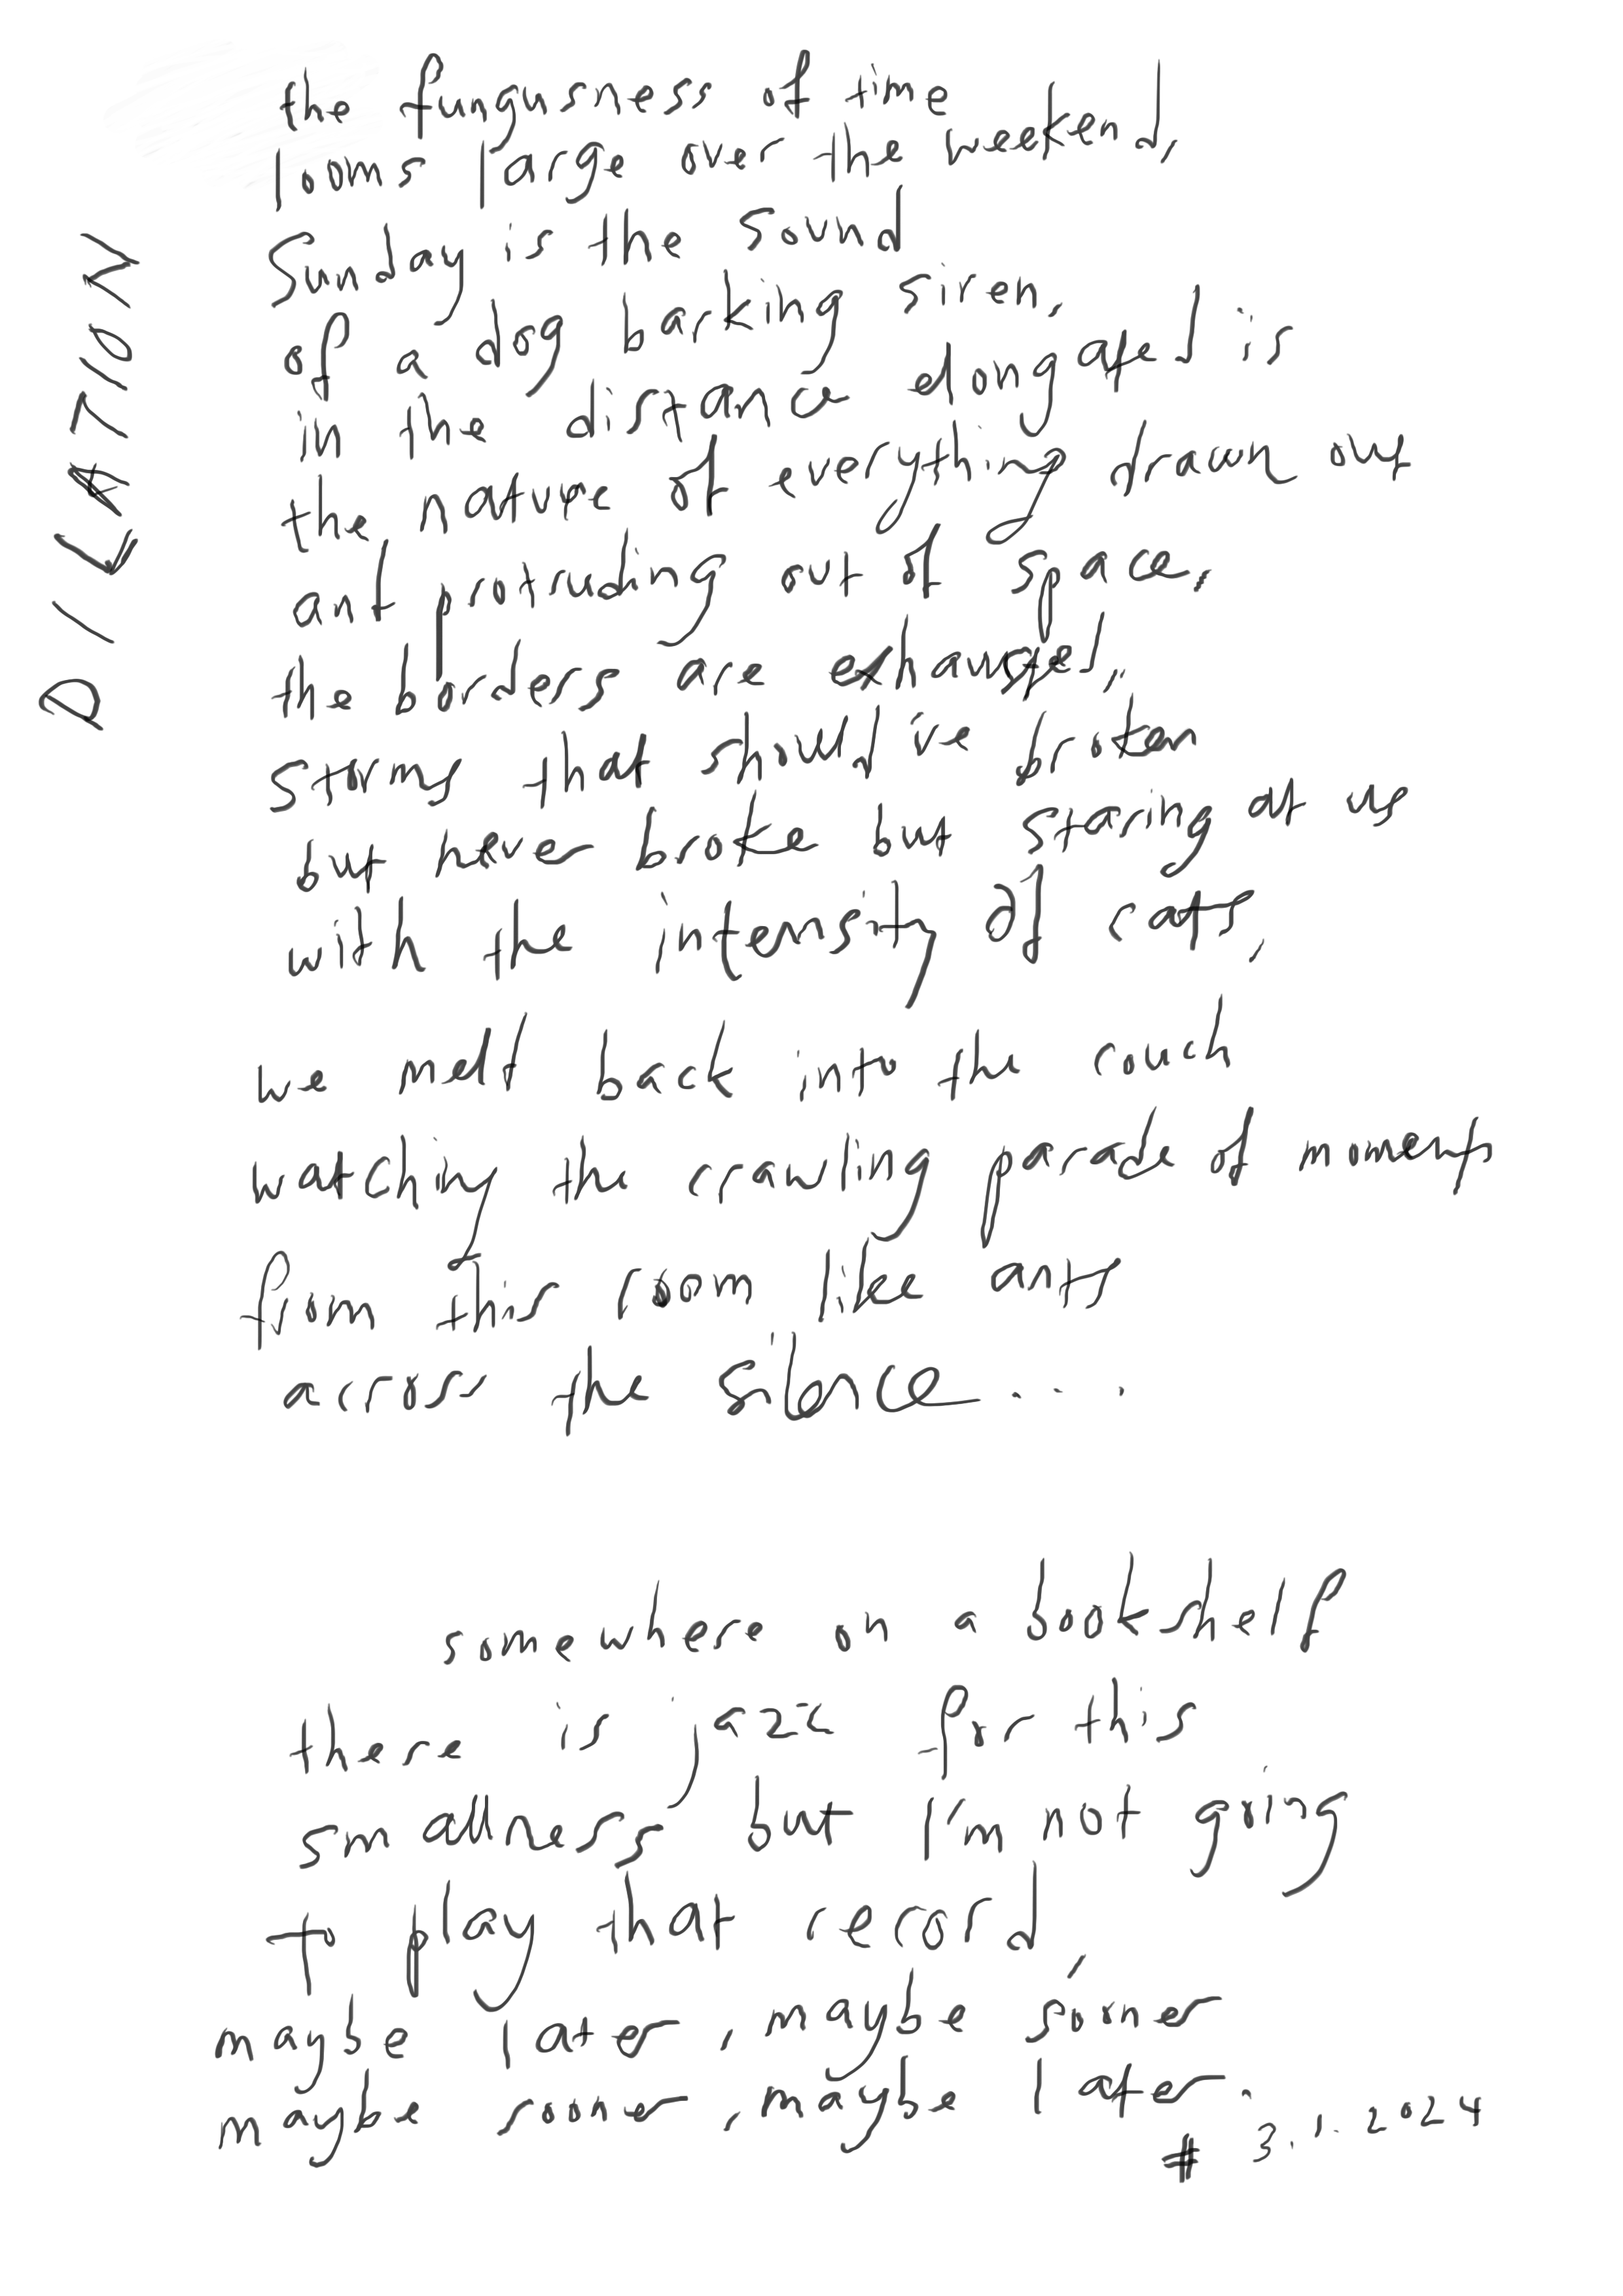 DILATION
the fungusness of time
looms large over the weekend,
Sunday is the sound
of a dog barking siren,
in the distance elongated is
the nature of everything drawn out
and protruding out of space,
the borders are exhausted,
storms that should've broken
but never broke but staring at us
with the intensity of cats,
we melt back into the couch
watching the crawling parade of moments
from this room like ants
across the silence....
somewhere on a bookshelf
there is jazz for this
smallness but I'm not going
to play that record,
maybe later, maybe sooner
maybe sooner, maybe later.
# 3.1.2024